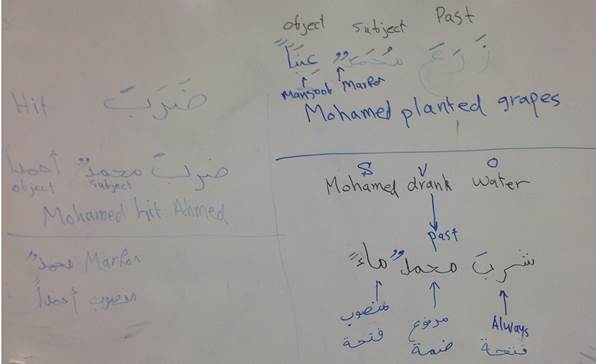 object subject Past
زَرَعَ مُحَمَدٌ عِنَبَاً
Mansoob Marfoa
Mohamed planted grapes
Hit ضَرَبَ
ضربَ محمدٌ أحمداً
object subject
Mohamed hit Ahmed
محمدٌ Marfoa
أحمداً منصوب
S V O
Mohamed drank water
past
شربَ محمدٌ ماءً
منصوب مرفوع Always
فتحة ضمة فتحة